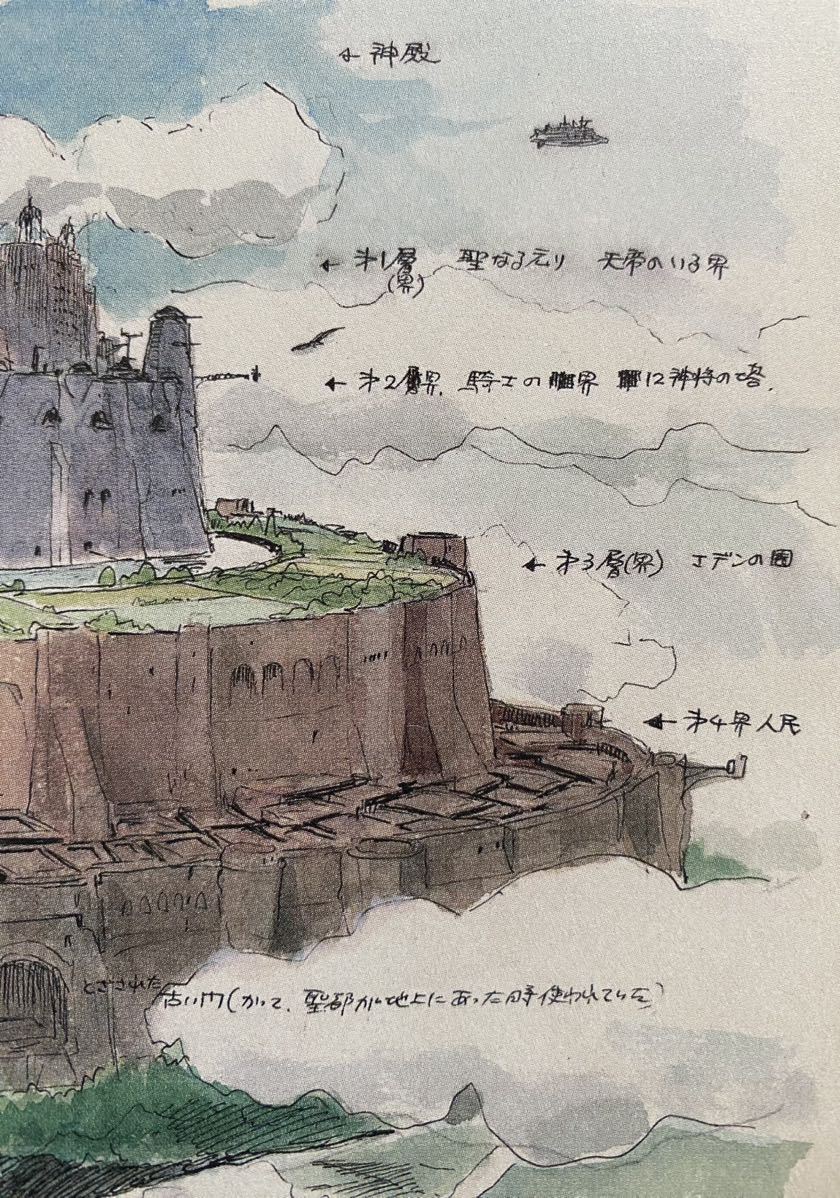 ← 神殿
← 才1層(界) 聖なる元り 天帝のいる界
← 才2層界. 騎士の界 12神将の塔.
← 才3層(界) エデンの園
← 才4界人民
とざされた
古い門(かつて、聖都が地上にあった時使われていた)